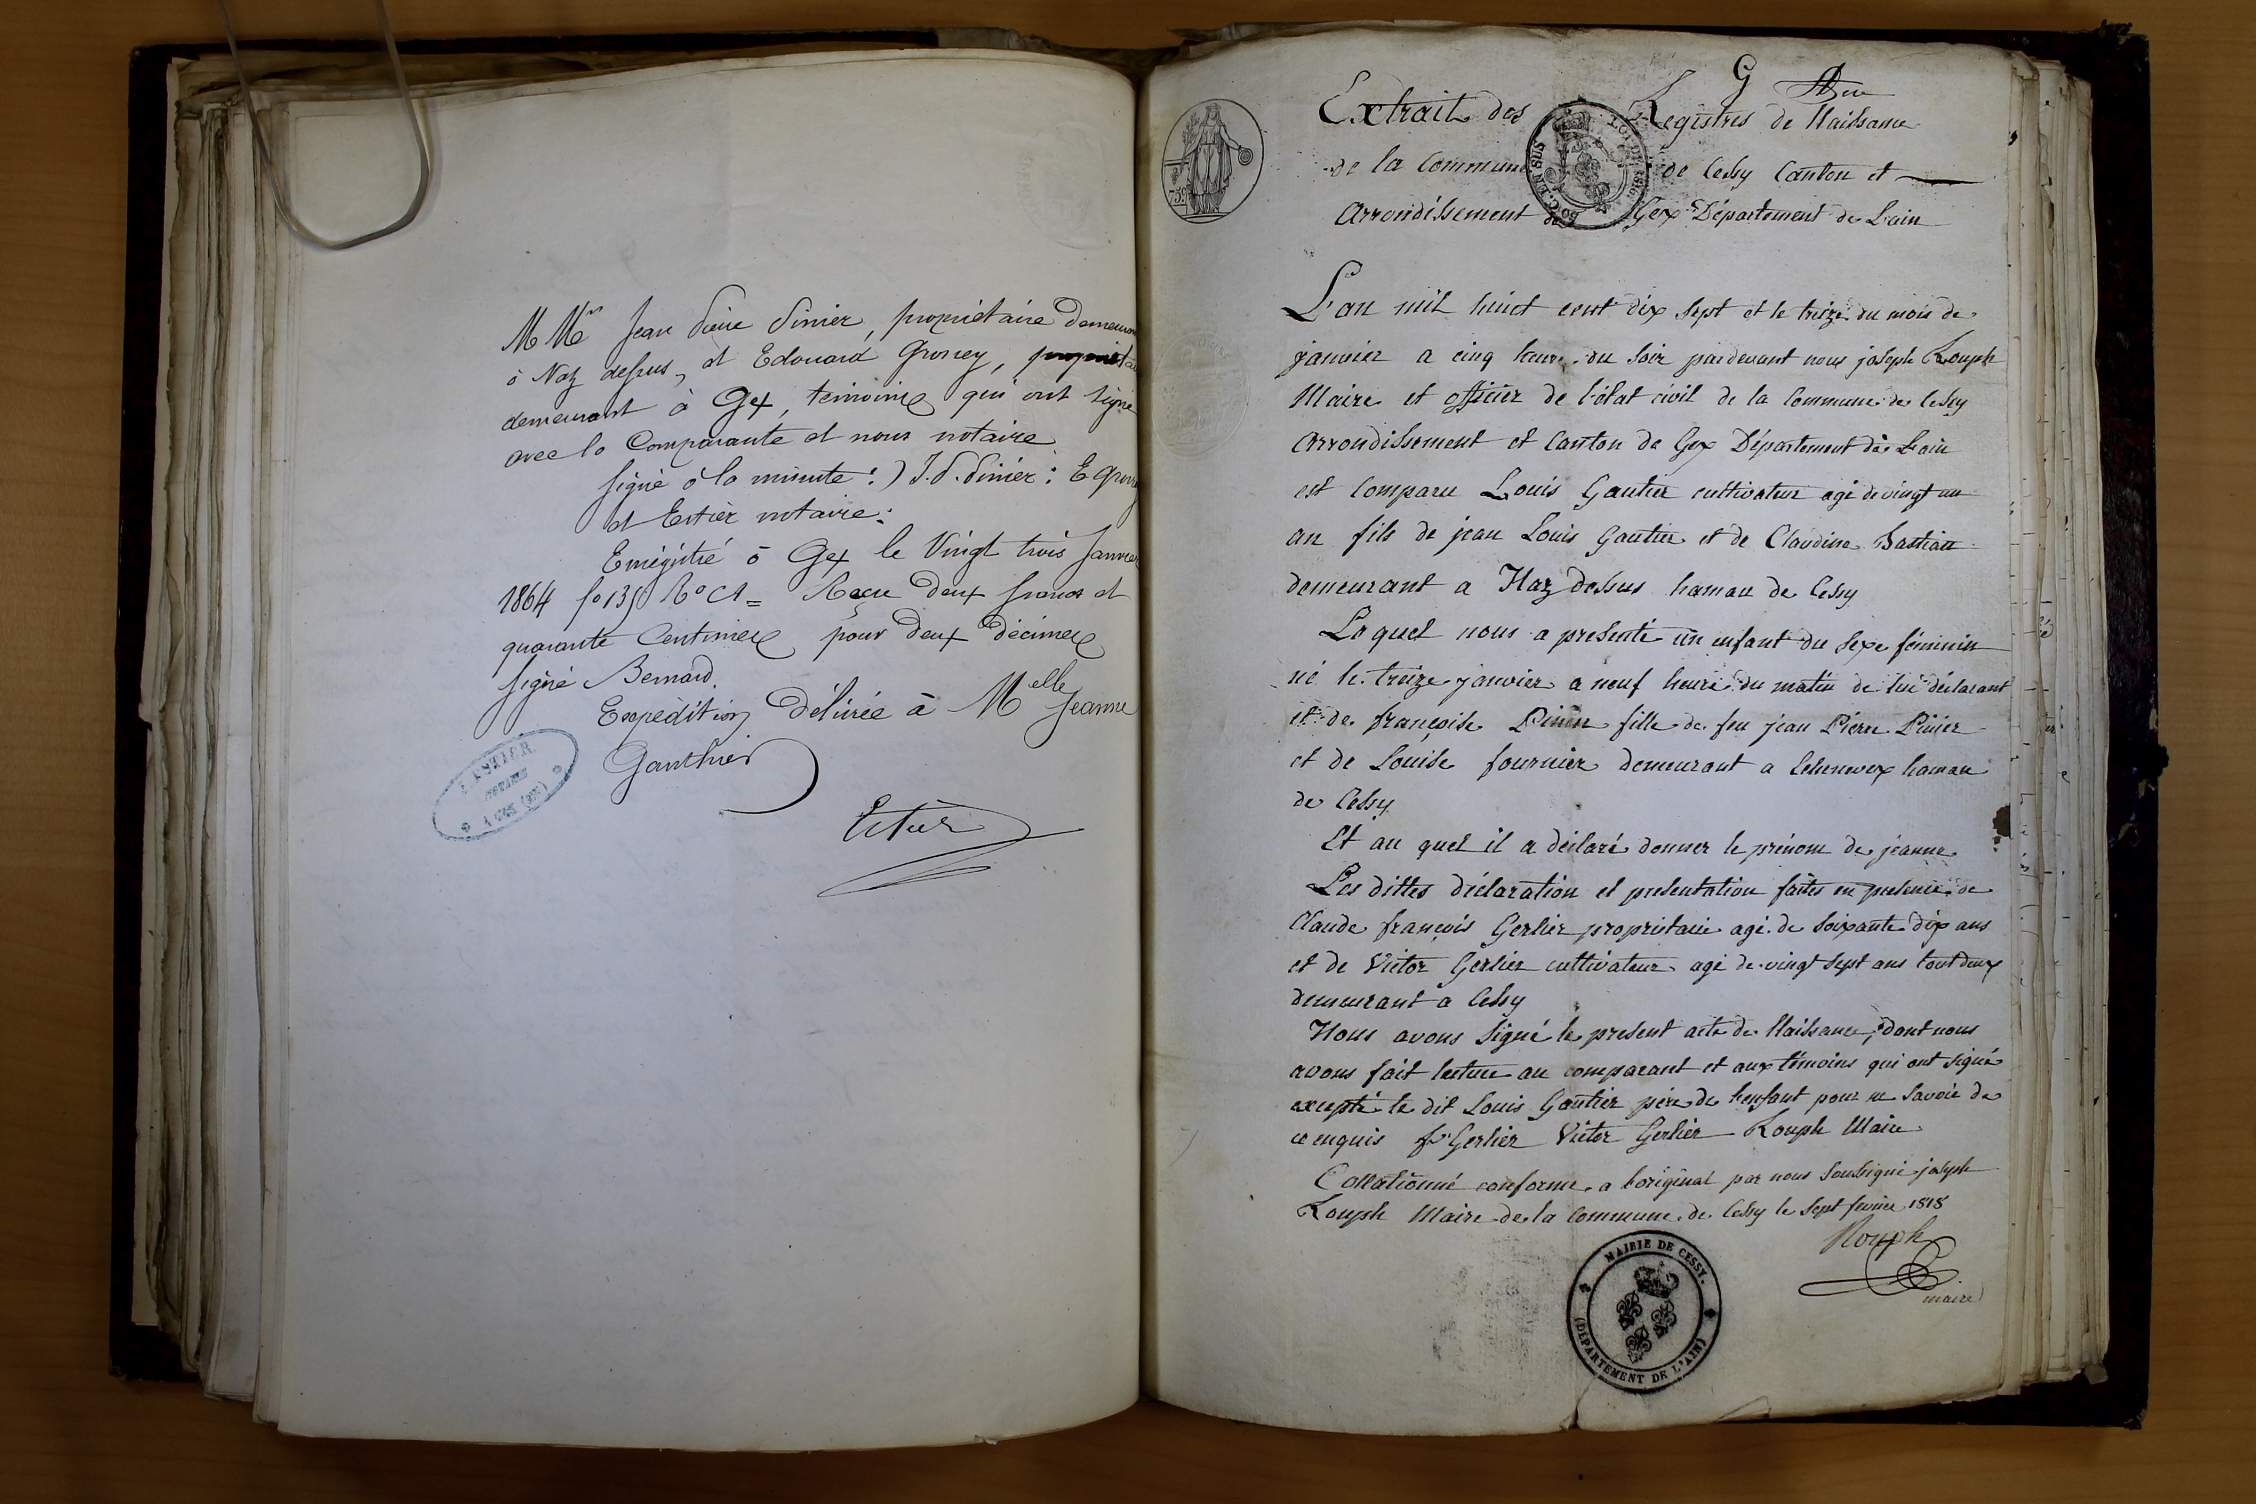 M Mrs Jean Pierre Pinier, propriétaire demeurant
à Naz dessus, et Edouard Grosrey, propriétai
demeurant à Gex, témoins qui ont signé
avec la Comparante et nous notaire
signé à la minute :) J. P. Pinier : E Gros
et Estier notaire :
Enregistré à Gex le Vingt trois Janvier
1864 fo 135 Ro C1 = Reçu deux francs et
quarante Centimes pour deux décimes
signé Bernard.
Expédition délivrée à Melle Jeanne
Gauthier
Estier
ESTIER
NOTAIRE
A GEX (AIN)
G
Extrait des Registres de Naissance
de la Commune de Cessy Canton et
arrondissement de Gex Département de Lain
75c
50 C. EN SUS
LOI DE 1816
L'an mil huict cent dix sept et le treize du mois de
janvier a cinq heure du soir pardevant nous joseph Rouph
Maire et officier de l'état civil de la Commune de Cessy
arrondissement et Canton de Gex Département de Lain
est Comparu Louis Gautier cultivateur agé de vingt un
an fils de jean Louis Gautier et de Claudine Bastian
demeurant a Naz dessus hamau de Cessy
Lequel nous a presenté un enfant du sexe féminin
né le treize janvier a neuf heure du matin de lui déclarant
et de françoise Pinier fille de feu jean Pierre Pinier
et de Louise fournier demeurant a Echenevex hamau
de Cessy
Et au quel il a déclaré donner le prénom de jeanne
Les dittes déclaration et presentation faites en presence de
Claude françois Gerlier propriétaire agé de soixante dix ans
et de Victor Gerlier cultivateur agé de vingt sept ans tout deux
demeurant a Cessy
Nous avons signé le present acte de Naissance, dont nous
avons fait lecture au comparant et aux témoins qui ont signé
excepté le dit Louis Gautier père de l'enfant pour ne savoir de
ce enquis fs Gerlier Victor Gerlier Rouph Maire
Collationné conforme a l'original par nous soussigné joseph
Rouph Maire de la Commune de Cessy le sept fevrier 1818
Rouph
maire
MAIRIE DE CESSY.
(DÉPARTEMENT DE L'AIN)